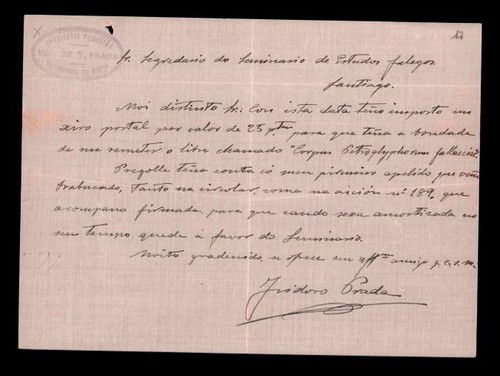 VDA. DE T. PRADA
17
Sr. Segredario do Seminario de Estudos Galegos
Santiago.
Moi distinto Sr: Con ista data teño imposto un
xiro postal por valor de 25 ptas para que teña a bondade
de me remeter o libro chamado "Corpus Petroglyphorum Gallaeciae".
Pregolle teña conta có meu primeiro apelido que viña
trabucado, tanto na circular, coma na aición nº 189, que
acompano firmada, para que cando sexa amortizada no
seu tempo quede á favor do Seminario.
Moito gradecido, se ofrece seu affmo amigo q. e. s. m.
Isidoro Prada